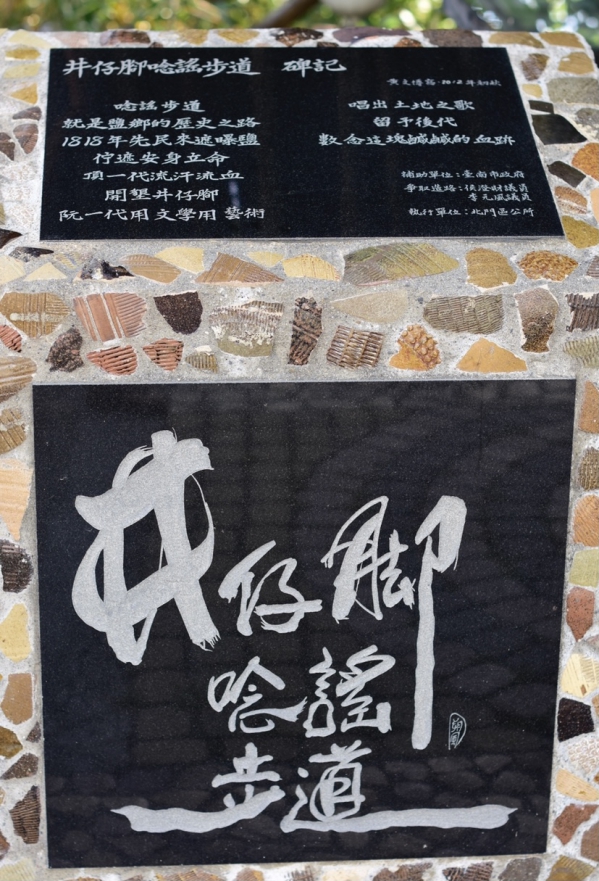 井仔腳唸謠步道 碑記
黃文博 撰‧2012年初秋
唸謠步道
就是鹽鄉的歷史之路
1818年先民來遮曝鹽
佇遮安身立命
頂一代流汗流血
開墾井仔腳
阮一代用文學用藝術
唱出土地之歌
留乎後代
數念這塊鹹鹹的血跡
補助單位：臺南市政府
爭取道路：侯澄財議員
李元風議員
執行單位：北門區公所
井仔腳
唸謠
步道